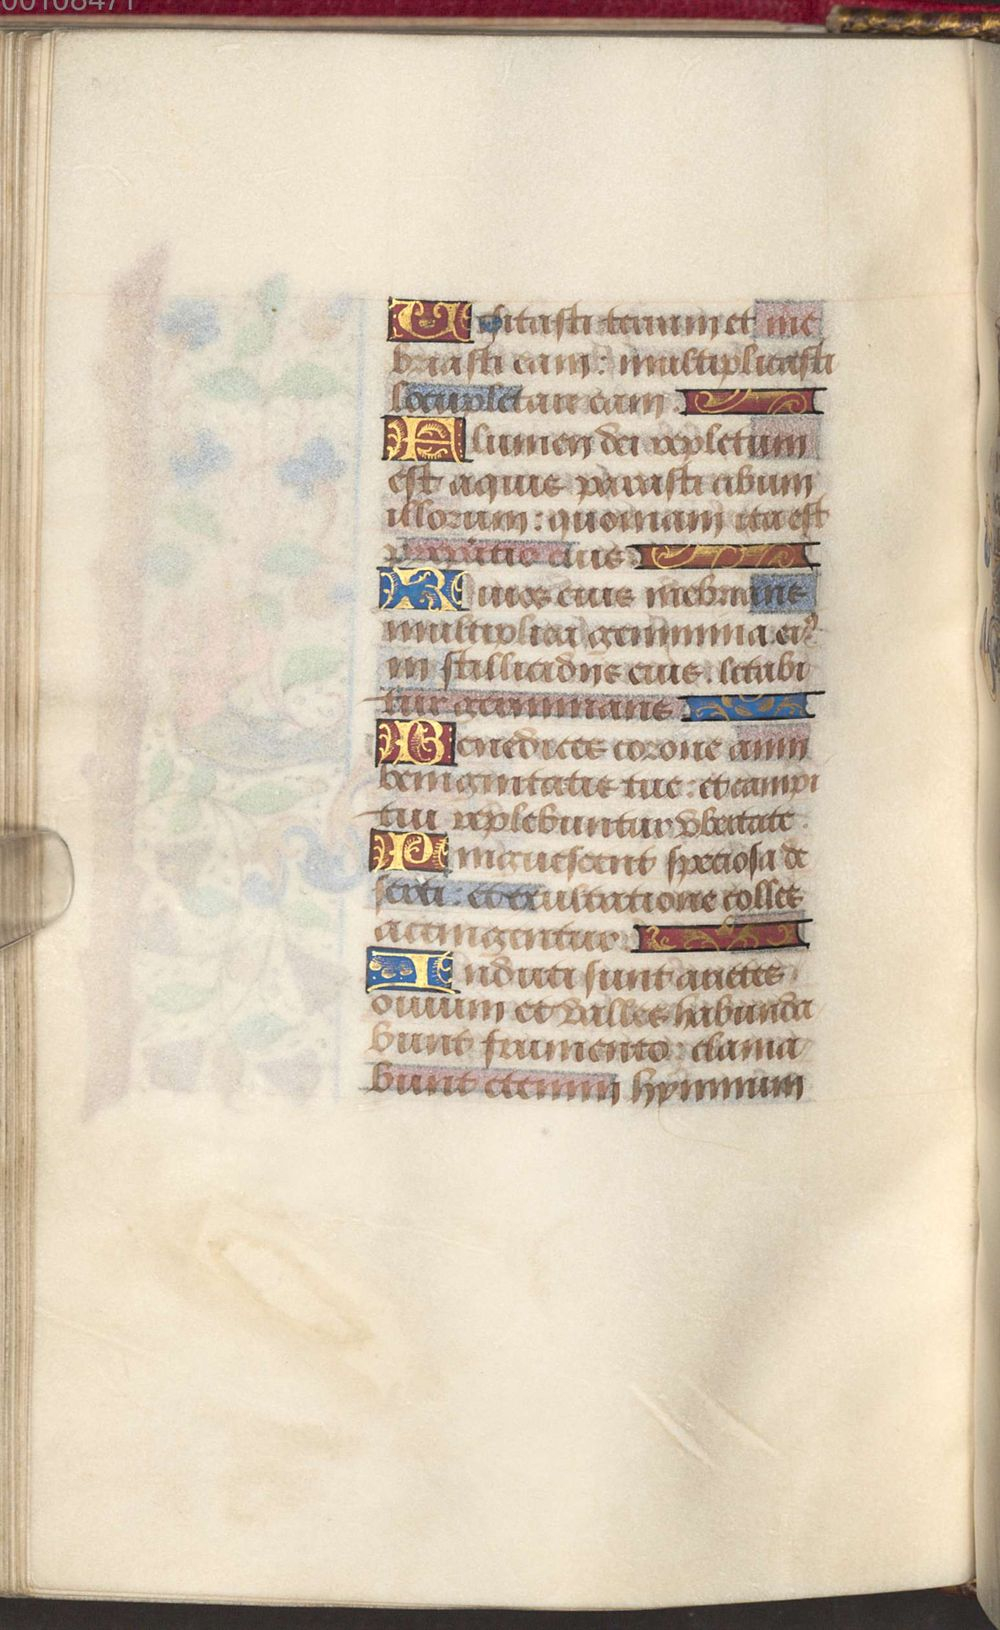 00108471
Uisitasti terram et ine
briasti eam: multiplicasti
locupletare eam.
Flumen dei repletum
est aquis parasti cibum
illorum: quoniam ita est
preparatio eius.
Riuos eius inebrians
multiplica genimina ei9
in stillicidijs eius. letabi
tur germinans
Benedices corone anni
benignitatis tue: et campi
tui replebuntur vbertate.
Pinguescent speciosa de
serti: et exultatione colles
accingentur.
Induti sunt arietes
ouium et valles habunda
bunt frumento: clama
bunt etenim hymnum